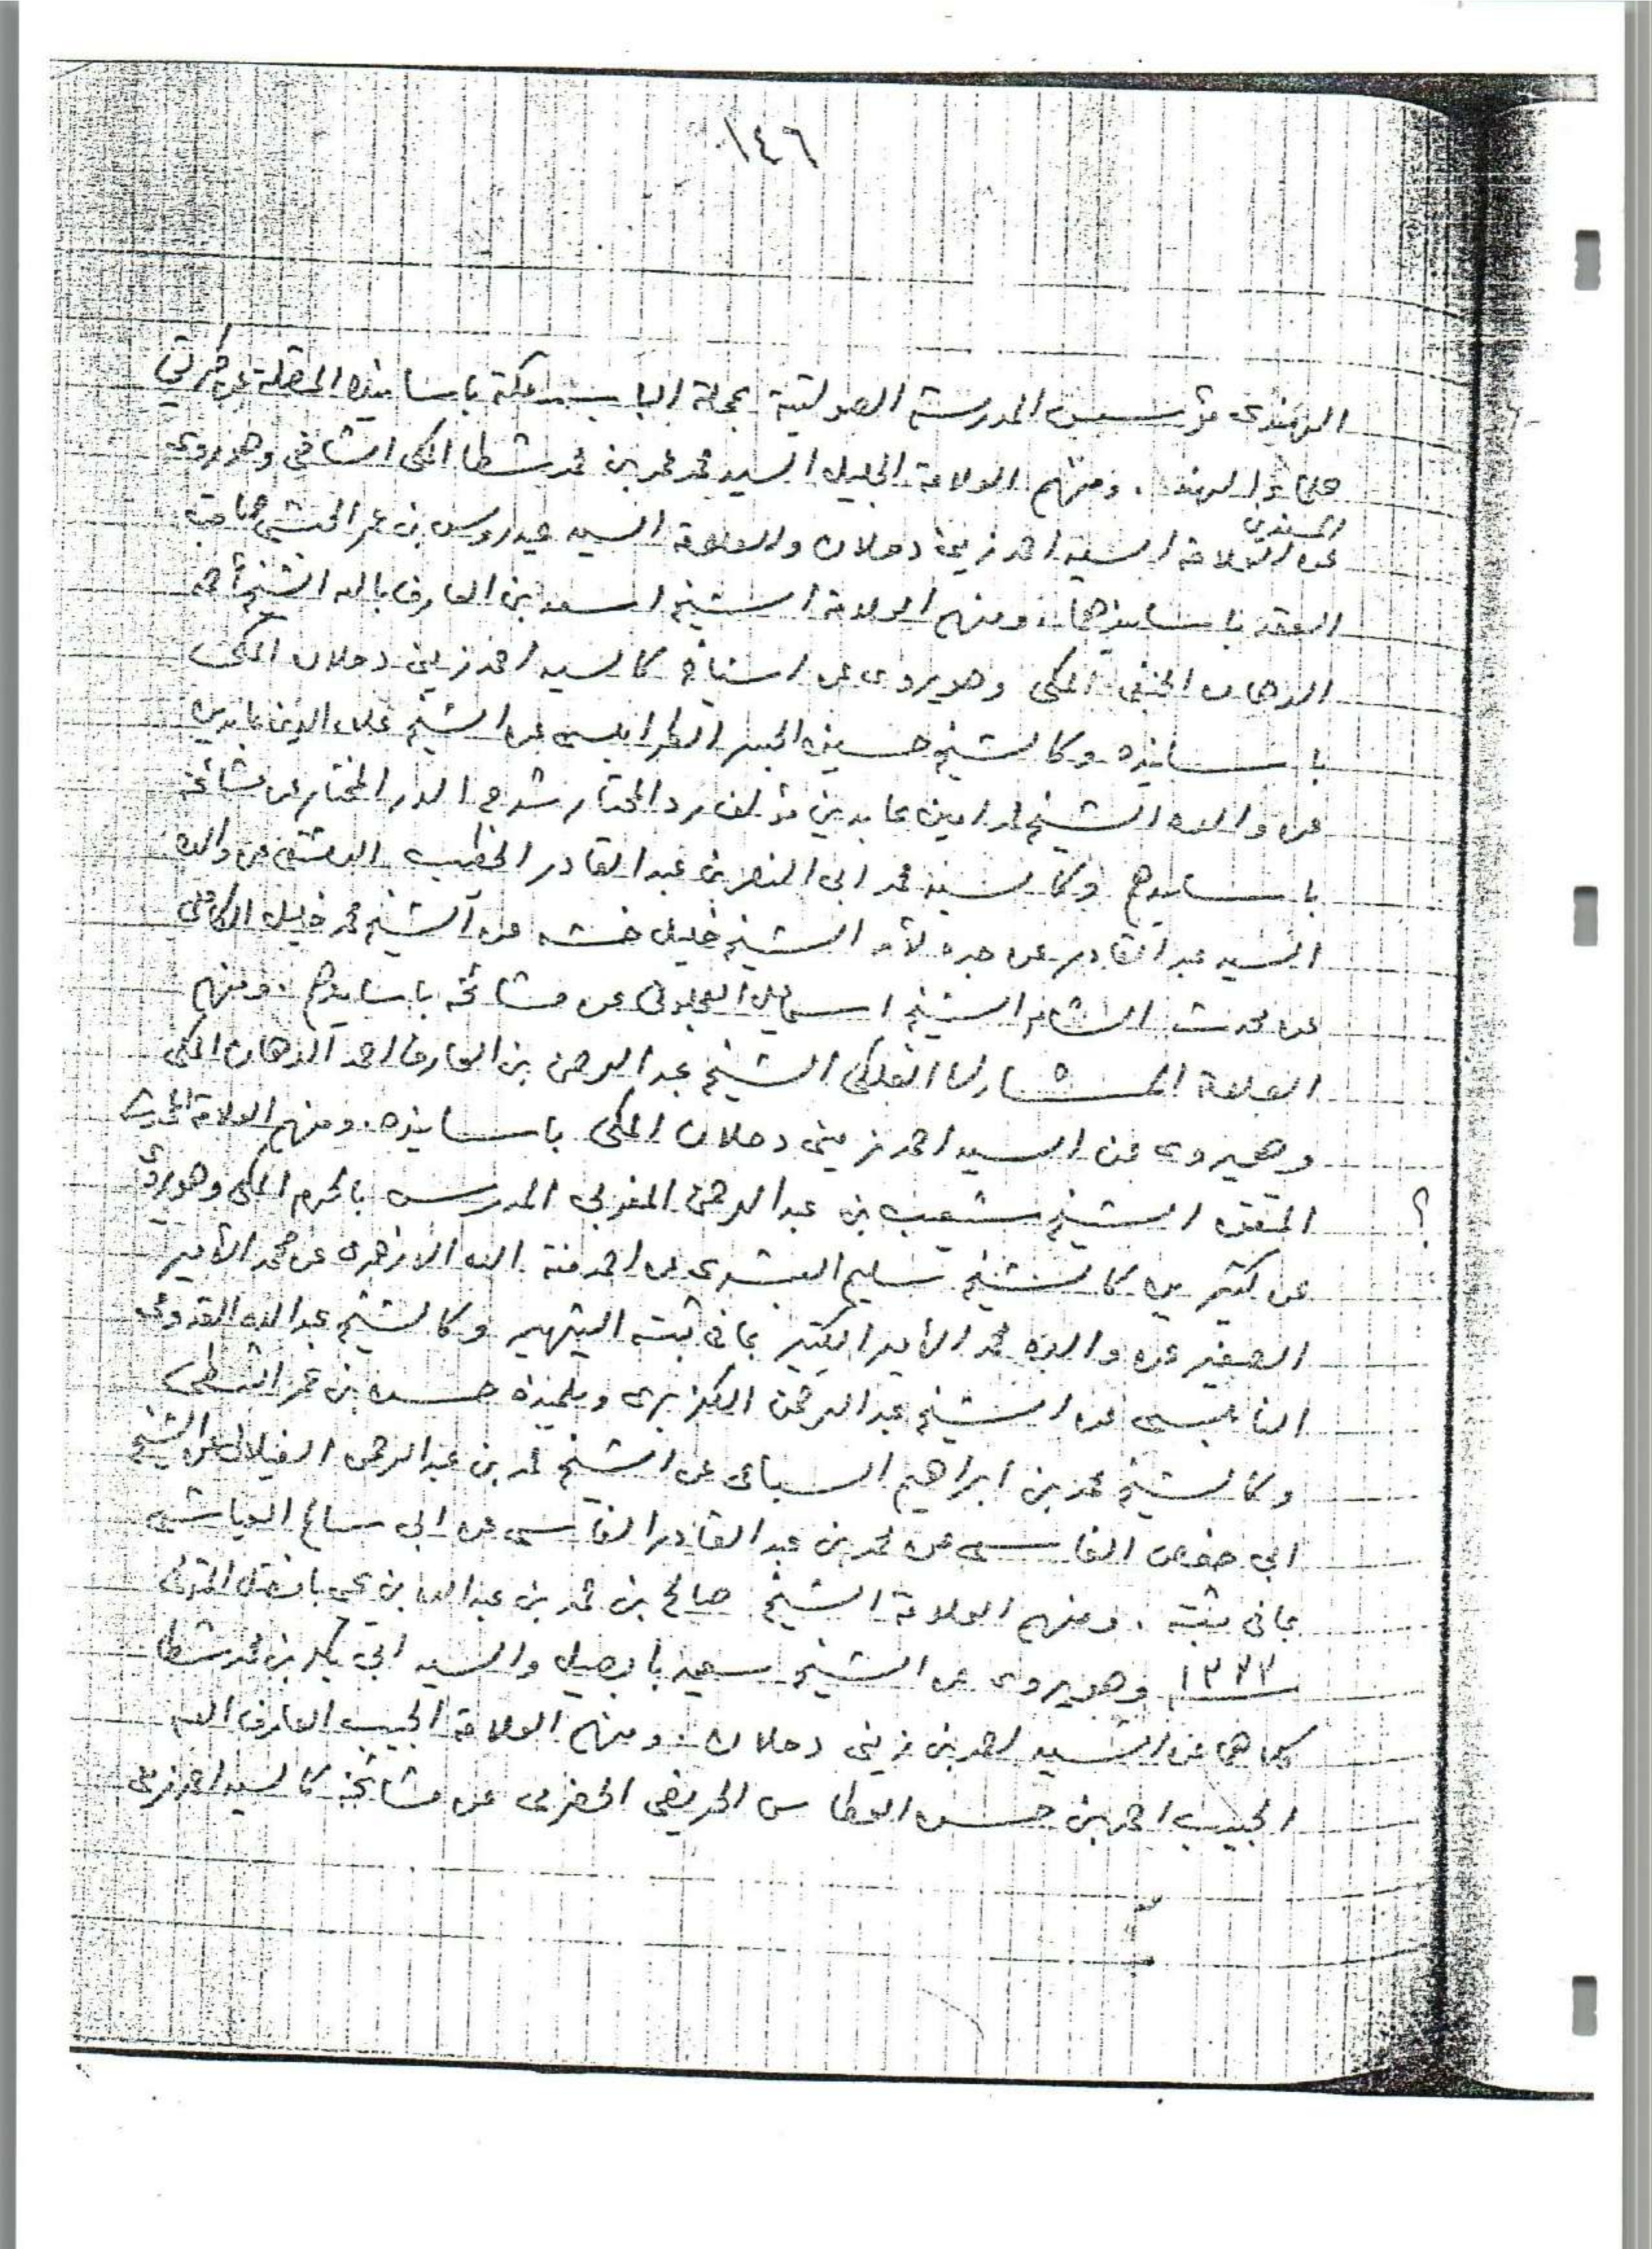 ١٤٦
الهندي مؤسس المدرسة الصولتية بمحلة الباب بمكة باسانيده المتصلة عن
علماء الهند . ومنهم العلامة الجليل السيد محمد عمر بن محمد شطا المكي الشافعي وهو يروى
عن العلامة السيد احمد زيني دحلان والعلامة السيد عيدروس بن عمر الحبشي صاحب
العقد باسانيدهما . ومنهم العلامة الشيخ اسعد بن العارف بالله الشيخ أحمد
الدهان الحنفي المكي وهو يروى عن اشياخ كالسيد احمد زيني دحلان المكي
باسانيده وكالشيخ حسين الجسر الطرابلسي عن الشيخ علاء الدين عابدين
عن والده الشيخ محمد امين عابدين مؤلف رد المحتار شرح الدر المختار عن مشائخه
باسانيدهم وكالسيد محمد ابي النصر بن عبد القادر الخطيب الدمشقي عن والده
السيد عبد القادر عن جده لأمه الشيخ خليل خشه عن الشيخ محمد خليل الكاملي
عن محدث الشام الشيخ اسماعيل العجلوني عن مشائخه باسانيدهم . ومنهم
العلامة المشارك الفلكي الشيخ عبد الرحمن بن العارف احمد الدهان المكي
وهو يروى عن السيد احمد زيني دحلان المكي باسانيده . ومنهم العلامة المحدث
؟ المتقن الشيخ شعيب بن عبد الرحمن المغربي المدرس بالحرم المكي وهو يروى
عن كثيرين كالشيخ سليم البشرى عن احمد منة الله الازهرى عن محمد الأمير
الصغير عن والده محمد الأمير الكبير بما في ثبته الشهير وكالشيخ عبد الله القدومي
النابلسي عن الشيخ عبد الرحمن الكزبرى وتلميذه حسن بن عمر الشطي
وكالشيخ محمد بن ابراهيم السباعي عن الشيخ محمد بن عبد الرحمن الفيلالي عن الشيخ
ابي حفص الفاسي عن محمد بن عبد القادر الفاسي عن ابي سالم العياشي
بما في ثبته . ومنهم العلامة الشيخ صالح بن محمد بن عبد الله بن بافضل المتوفى
١٣٣٣ وهو يروى عن الشيخ سعيد بابصيل والسيد ابي بكر بن محمد شطا
كلاهما عن السيد احمد بن زيني دحلان . ومنهم العلامة الحبيب العارف بالله
الحبيب احمد بن حسن العطاس الحريضي الحضرمي عن مشائخه كالسيد احمد زيني